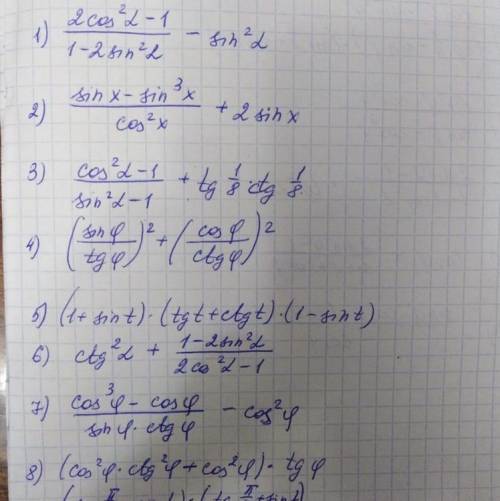 1) (2cos²α − 1)/(1 − 2sin²α) − sin²α
2) (sin x − sin³x)/(cos²x) + 2 sin x
3) (cos²α − 1)/(sin²α − 1) + tg 1/8 · ctg 1/8
4) (sinφ/tgφ)² + (cosφ/ctgφ)²
5) (1 + sin t) · (tg t + ctg t) · (1 − sin t)
6) ctg²α + (1 − 2sin²α)/(2cos²α − 1)
7) (cos³φ − cosφ)/(sinφ · ctgφ) − cos²φ
8) (cos²φ · ctg²φ + cos²φ) · tgφ